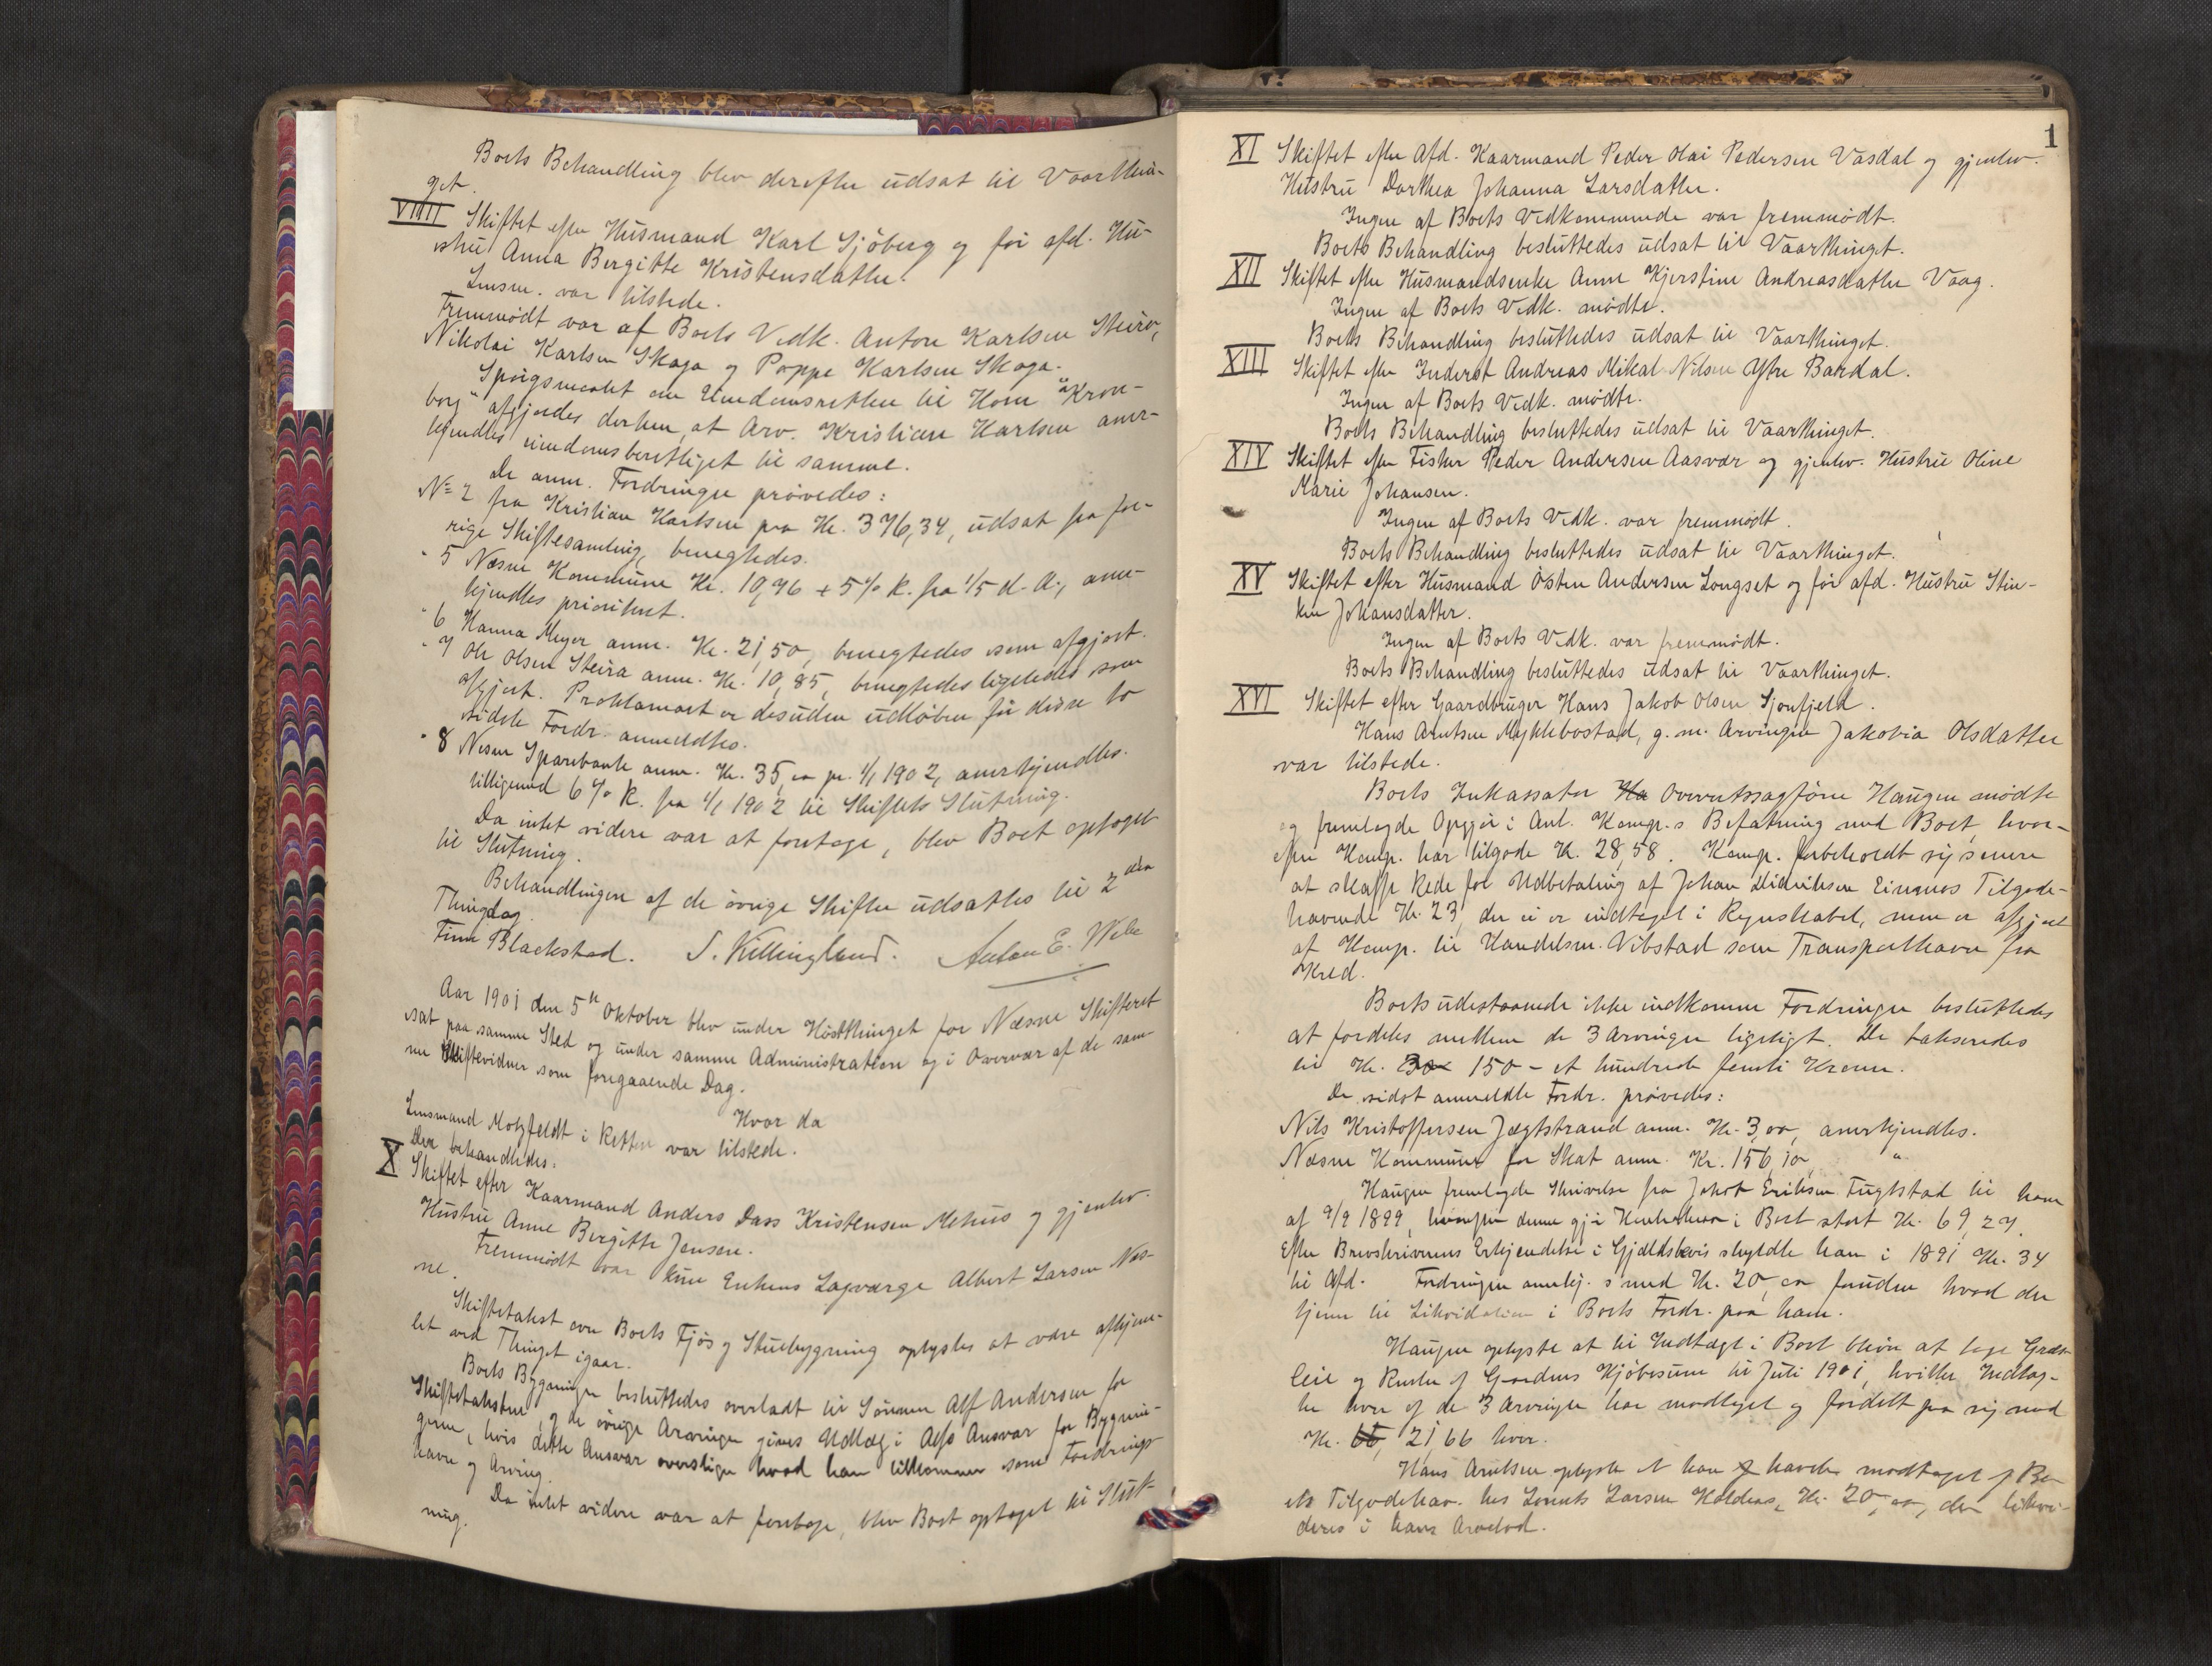 Boets Behandling blev derefter udsat til Vaarthin-
get.
VIIII Skiftet efter Husmand Karl Sjöberg og før afd. Hu-
stru Anna Bergitte Kristensdatter.
Lensm. var tilstede.
Fremmødt var af Boets Vedk. Anton Karlsen Steiro,
Nikolai Karlsen Skaga og Poppe Karlsen Skaga.
Spørgsmaalet om Eiendomsretten til Hom "Kron-
borg" afgjordes derhen, at Arv. Kristian Karlsen aner-
kjendtes eiendomsberettiget til samme.
De anm. Fordringer prøvedes:
No 2 fra Kristian Karlsen paa Kr. 376,34, udsat fra for-
rige Skiftesamling, benegtedes.
" 5 Næsne Kommune Kr. 10,76 + 5% R. fra 1/5 d. A., aner-
kjendtes prioritert.
" 6 Hanna Meyer anm. Kr. 21,50, benegtedes som afgjort.
" 7 Ole Olsen Steira anm. Kr. 10,85, benegtedes ligeledes som
afgjort. Proklamaet er desuden udløben før disse to
sidste Fordr. anmeldtes.
" 8 Nesne Sparebank anm. Kr. 35,00 pr. 1/1 1902, anerkjendtes.
tilligemed 6% R. fra 1/1 1902 til Skiftets Slutning.
Da intet videre var at foretage, blev Boet optaget
til Slutning.
Behandlingen af de øvrige Skifter udsattes til 2den
Thingdag.
Finn Blackstad. S. Killingland. Anton E.
Aar 1901 den 5te Oktober blev under Høstthinget for Næsne Skifteret
sat paa samme Sted og under samme Administration og i Overvær af de sam-
me Skiftevidner som foregaaende Dag.
Hvor da
Lensmand Motzfeldt i Retten var tilstede.
Der behandledes:
X Skiftet efter Kaarmand Anders Dass Kristensen Mehus og gjenlev.
Hustru Anne Birgitte Jensen.
Fremmødt var kun Enkens Lagværge Albert Larsen Næs-
ne.
Skiftetakst over Boets Fjøs og Stuebygning oplystes at være afhjem-
let ved Thinget igaar.
Boets Bygninger besluttedes overladt til Sønnen Alf Andersen for
Skiftetaksten, og de øvrige Arvinger gives Udlæg i Alfs Ansvar for Bygnin-
gerne, hvis dette Ansvar overstiger hvad han tilkommer som Fordrings-
haver og Arving.
Da intet videre var at foretage, blev Boet optaget til Slut-
ning.
1
XI Skiftet efter Afd. Kaarmand Peder Olai Pedersen Vasdal og gjenlev.
Hustru Dorthea Johanna Larsdatter.
Ingen af Boets Vedkommende var fremmødt.
Boets Behandling besluttedes udsat til Vaarthinget.
XII Skiftet efter Husmandsenke Anne Kjerstine Andreasdatter Vaag.
Ingen af Boets Vedk. mødte.
Boets Behandling besluttedes udsat til Vaarthinget.
XIII Skiftet efter Inderst Andreas Mikal Nilsen Ytre Bardal.
Ingen af Boets Vedk. mødte.
Boets Behandling besluttedes udsat til Vaarthinget.
XIV Skiftet efter Fisker Peder Andersen Aasvær og gjenlev. Hustru Oline
Marie Johansen.
Ingen af Boets Vedk. var fremmødt.
Boets Behandling besluttedes udsat til Vaarthinget.
XV Skiftet efter Husmand Østen Andersen Longset og før afd. Hustru Stin-
ken Johansdatter.
Ingen af Boets Vedk. var fremmødt.
Boets Behandling besluttedes udsat til Vaarthinget.
XVI Skiftet efter Gaardbruger Hans Jakob Olsen Sjonfjeld.
Hans Arntsen Myklebostad, g. m. Arvingen Jakobia Olsdatter
var tilstede.
Boets Inkassator Ha Overretssagfører Haugen mødte
og fremlagde Opgjør i Anl. Komp.s Befatning med Boet, hvor-
efter Komp. har tilgode Kr. 28,58. Komp. forbeholdt sig senere
at skaffe Rede for Udbetaling af Johan Didriksen Tilgode-
havende Kr. 23, der ei er indtaget i Regnskabet, men er afgjort
af Komp. til Handelsm. Vibstad som Transporthaver fra
Kred.
Boets udestaaende ikke indkomne Fordringer besluttedes
at fordeles mellem de 3 Arvinger ligeligt. De takseredes
til Kr. 150 – et hundrede femti Kroner.
De sidst anmeldte Fordr. prøvedes:
Nils Kristoffersen Jægtstrand anm. Kr. 3,00, anerkjendtes.
Næsne Kommune for Skat anm. Kr. 156,10, "
Haugen fremlagde Skrivelse fra Jakob Eriksen Fugtstad til ham
af 9/9 1899, hvorefter denne gjør i Boet stort Kr. 69,27.
Efter Brevskriverens Erkjendelse i Gjældsbevis skyldte han i 1891 Kr. 34
til Afd. Fordringen anerkj.s med Kr. 20,00 foruden hvad der
tjener til Likvidation i Boets Fordr. paa ham.
Haugen oplyste at til Indtægt i Boet bliver at tage Græs-
leie og Renter af Gaardens Kjøbesum til Juli 1901, hvilke Indtæg-
ter hver af de 3 Arvinger har modtaget og fordelt paa sig med
Kr. 21,66 hver.
Hans Arntsen oplyste at han havde modtaget af Bo-
ets Tilgodehav. hos Lorents Larsen Kr. 20,00, der likvi-
deres i hans Arvelod.